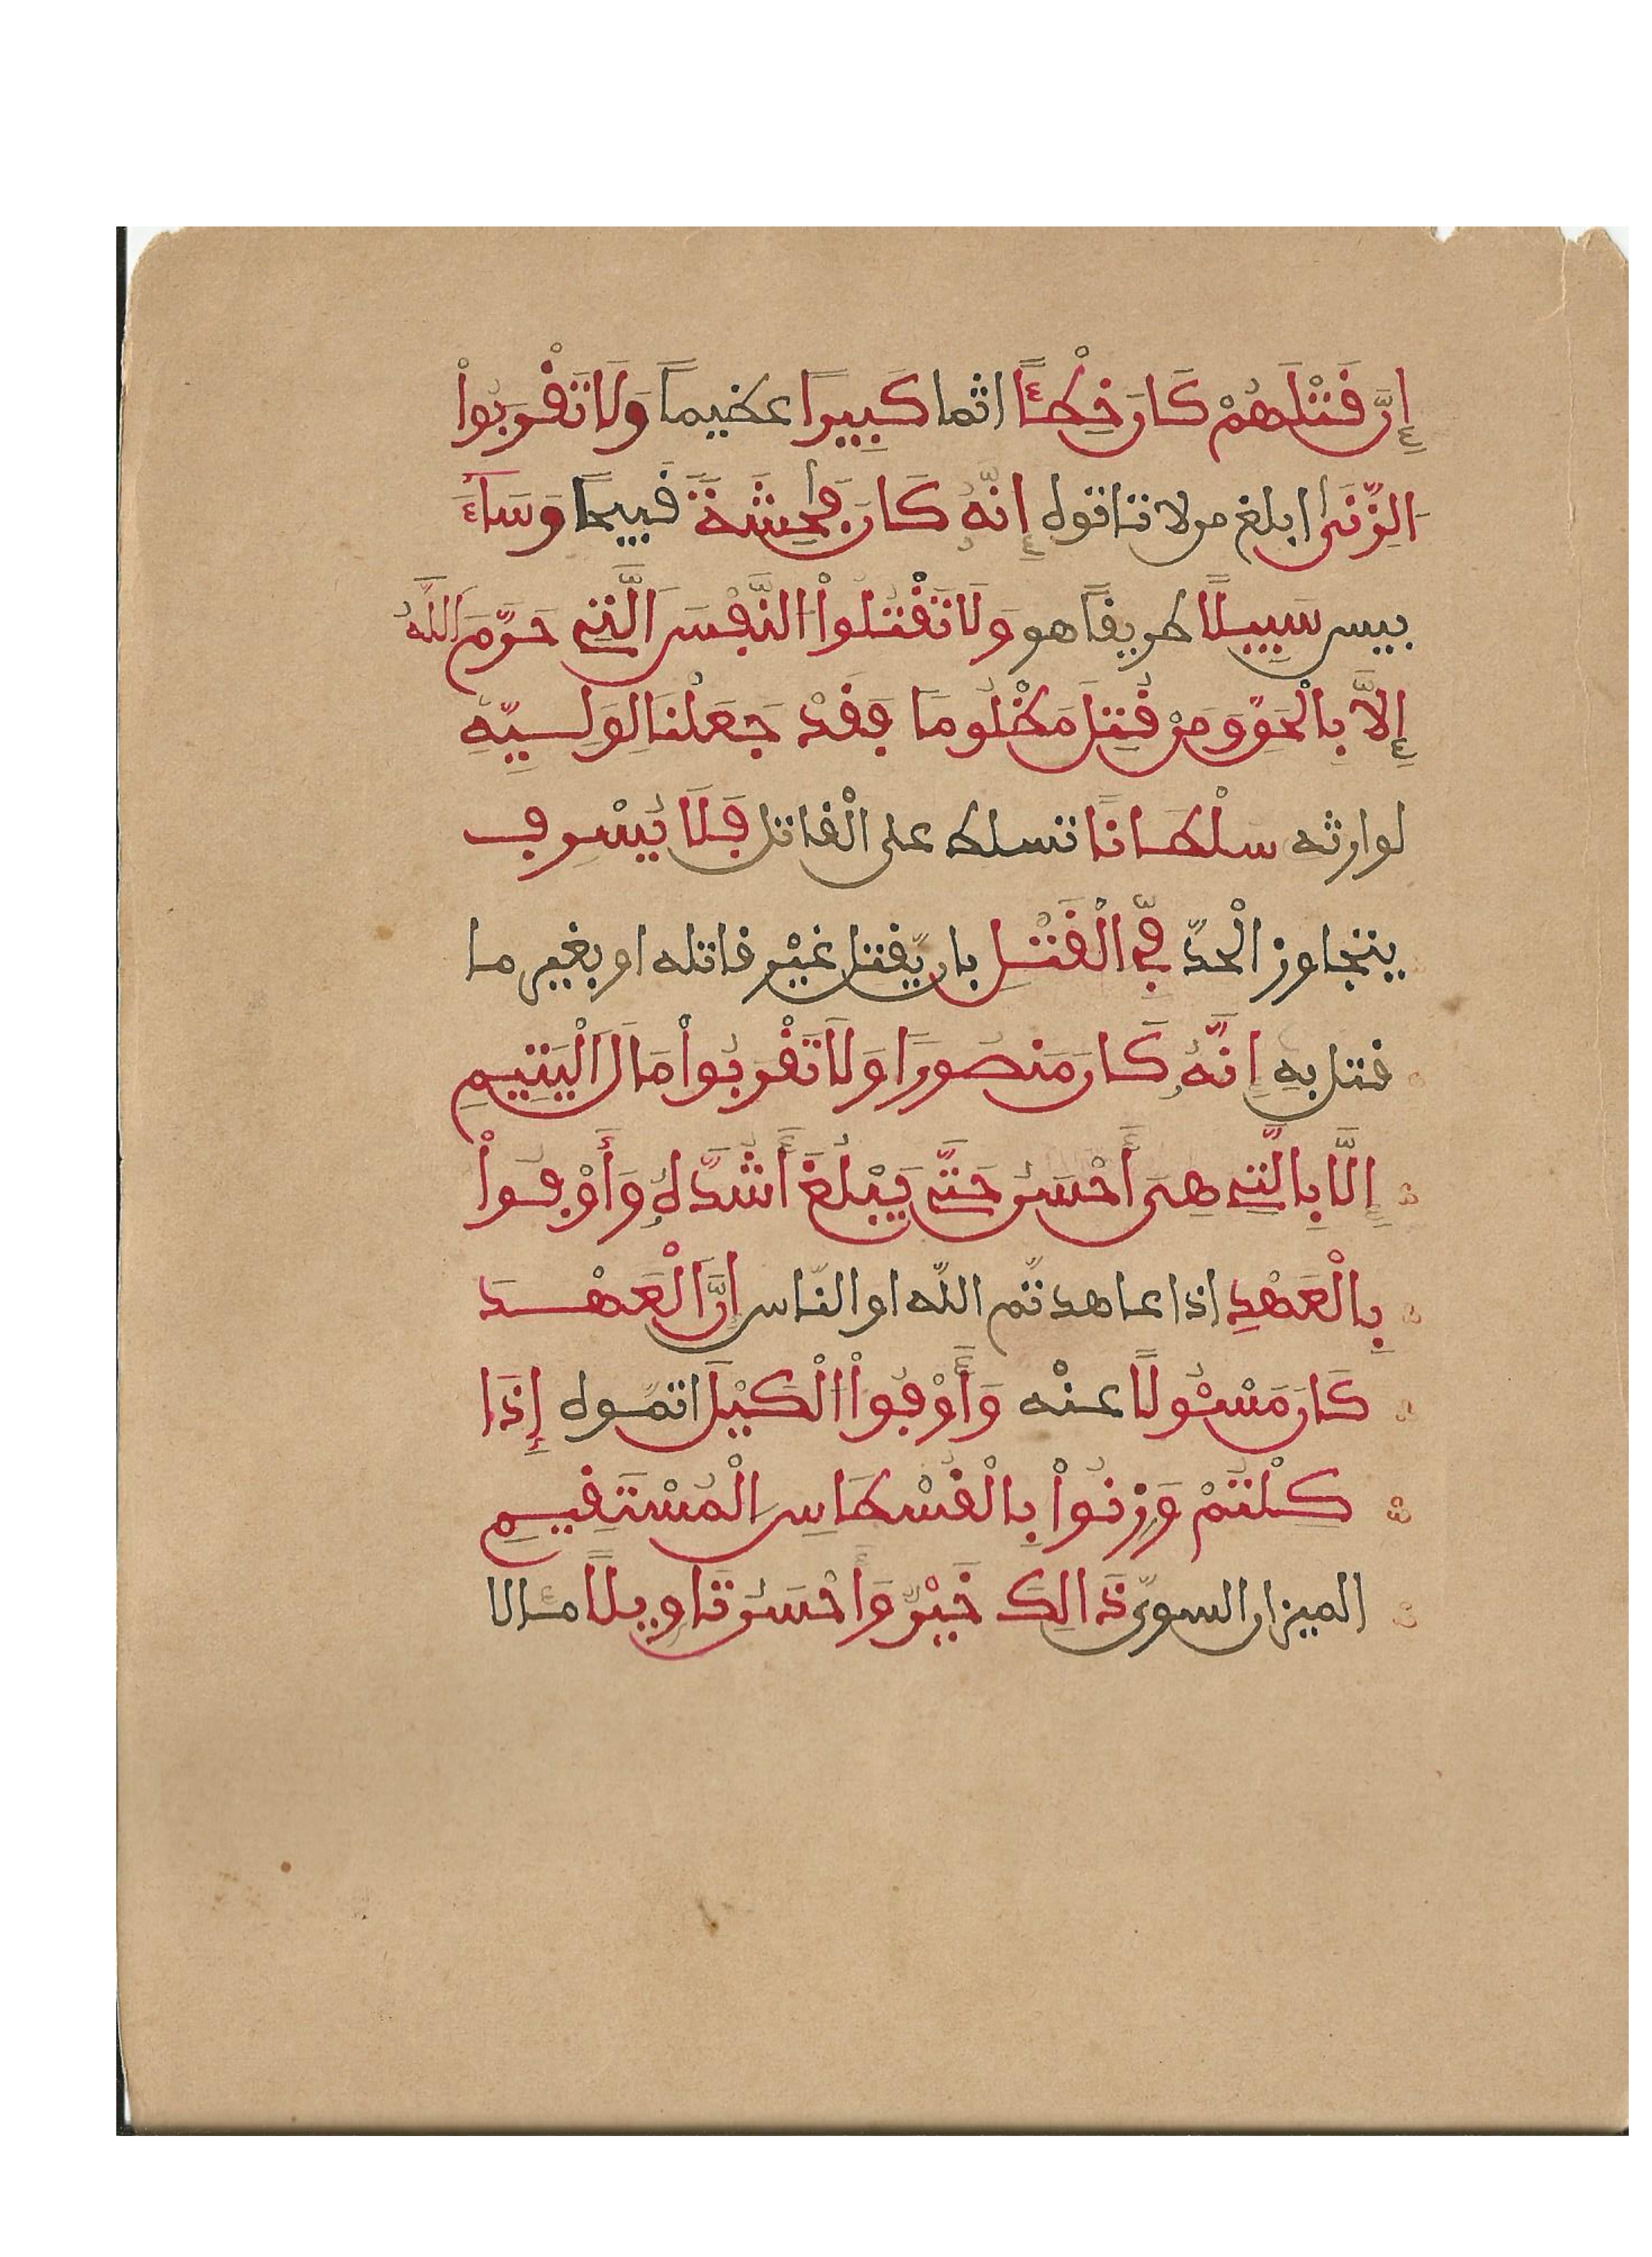 إِنَّ قَتْلَهُمْ كَانَ خِطْـًٔا اثما كَبِيرًا عظيماً وَلَا تَقْرَبُواْ
الزِّنَىٰ ابلغ من لا تاتوه إِنَّهُۥ كَانَ فَٰحِشَةً قبيحًا وَسَآءَ
بيس سَبِيلًا طريقاً هو وَلَا تَقْتُلُواْ النَّفْسَ الَّتِے حَرَّمَ اللَّهُ
إِلَّا بِالْحَقِّ وَمَن قُتِلَ مَظْلُومًا فَقَدْ جَعَلْنَا لِوَلِيِّهِۦ
لوارثه سلْطَانًا تسلط على الْقاتل فَلَا يُسْرِف
يتجاوز الْحدّ فِّے الْقَتْلِ بان يّقتل غيْر قاتله او بغير ما
قتل بهِ إِنَّهُۥ كَانَ مَنصُورًا وَلَا تَقْرَبُواْ مَالَ الْيَتِيمِ
إِلَّا بِالَّتِے هِىَ أَحْسَنُ حَتَّىٰ يَبْلُغَ أَشُدَّهُۥ وَأَوْفُواْ
بِالْعَهْدِ اذا عاهدتّم اللّه او النّاس إِنَّ الْعَهْدَ
كَانَ مَسْـُٔولًا عنْه وَأَوْفُواْ الْكَيْلَ اتمّوه إِذَا
كِلْتُمْ وَزِنُواْ بِالْقُسْطَاسِ الْمُسْتَقِيمِ
الميزان السوىّ ذَالِكَ خَيْرٌ وَأَحْسَنُ تَاوِيلًا مـٔالا